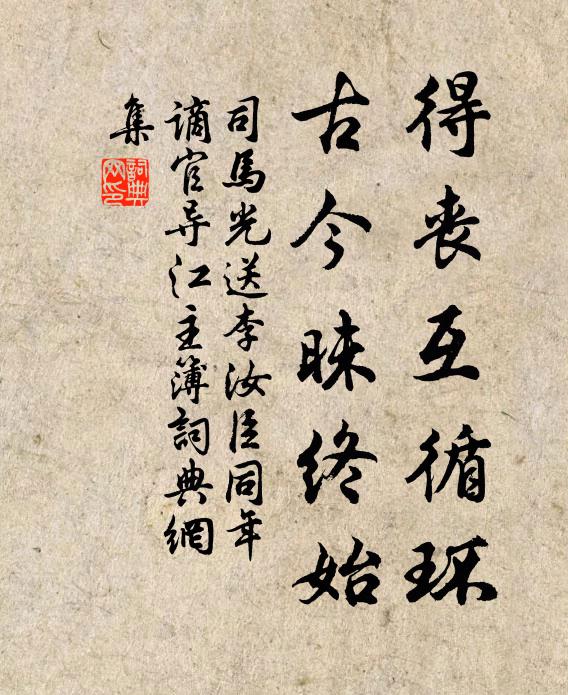 得丧互循环
古今昧终始
司馬光送李汝臣同年
谪官导江主簿詞典網
集
詞典
网印